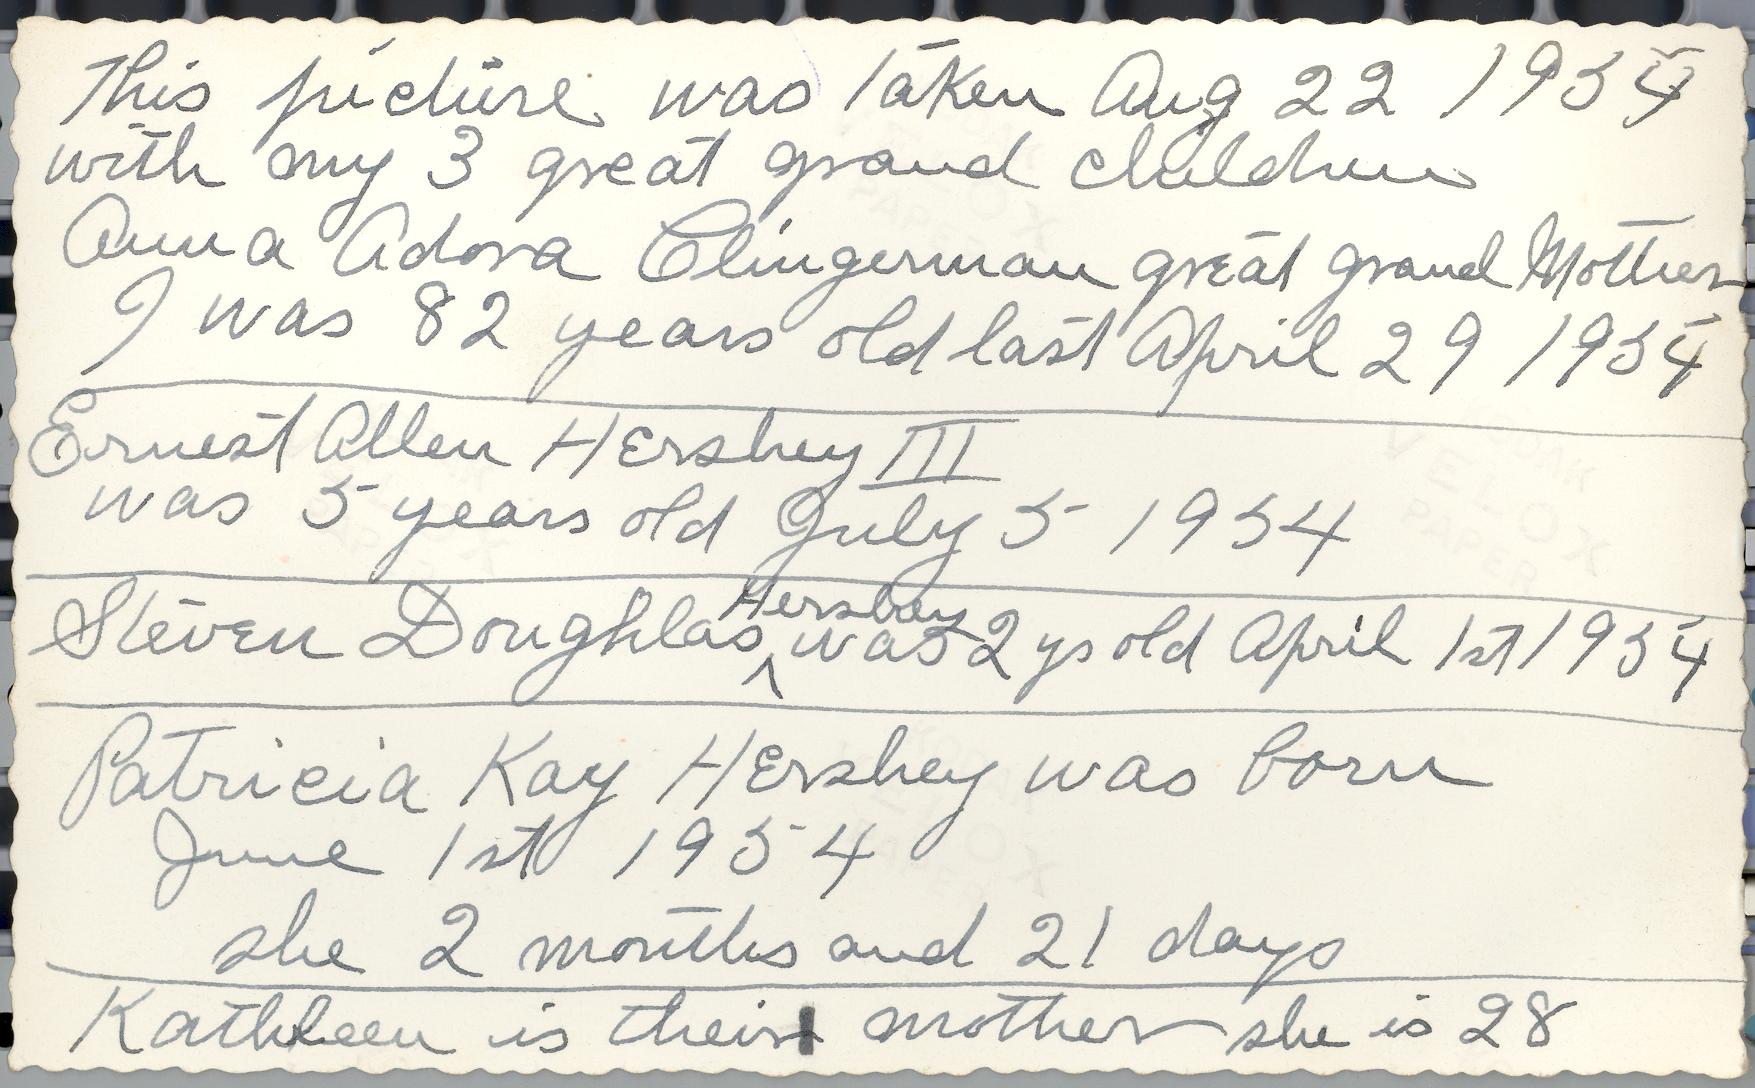 This picture was taken Aug 22 1954
with my 3 great grand children
Anna Adora Clingerman great grand Mother
I was 82 years old last April 29 1954
Ernest Allen Hershey III
was 5 years old July 5 1954
Steven Doughlas Hershey was 2 ys old April 1st 1954
Patricia Kay Hershey was born
June 1st 1954
she 2 months and 21 days
Kathleen is their mother she is 28
KODAK
VELOX
PAPER